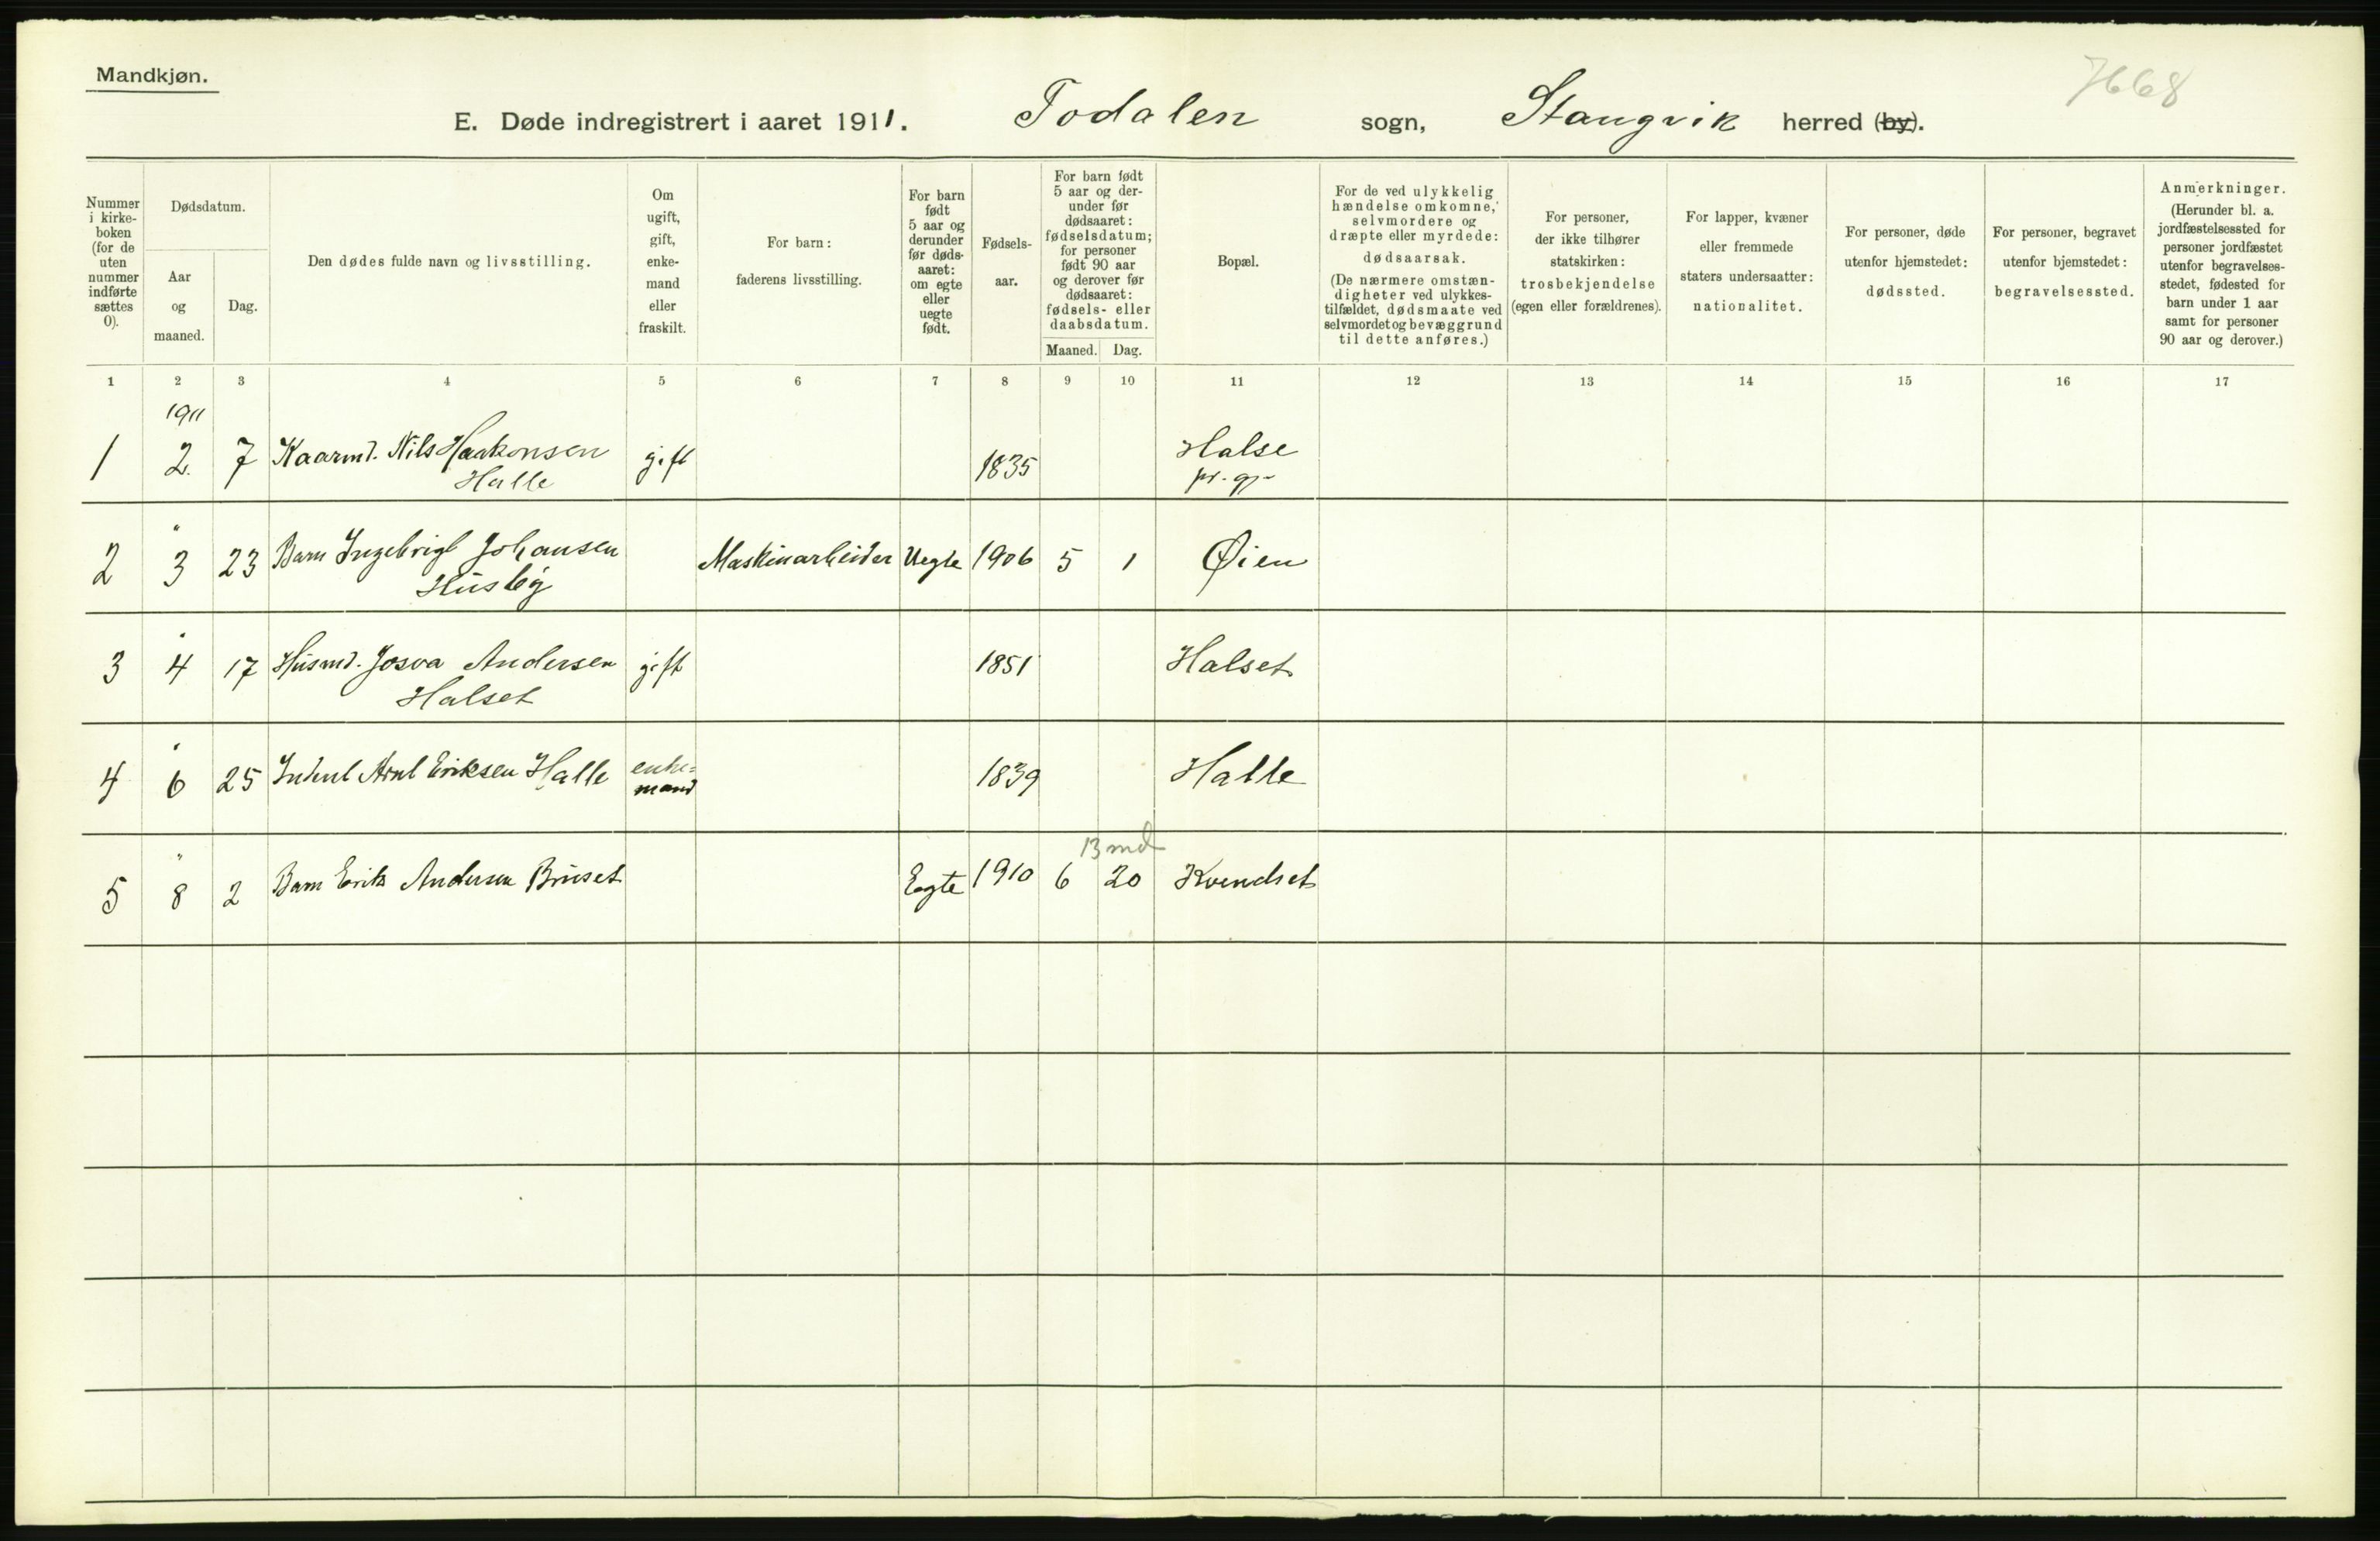 Mandkjøn.
7668
E. Døde indregistrert i aaret 1911. Todalen sogn, Stangvik herred (by).
Nummer i kirke-boken (for de uten nummer indførte sættes 0).
Dødsdatum.
Aar og maaned.
Dag.
Den dødes fulde navn og livsstilling.
Om ugift, gift, enke-mand eller fraskilt.
For barn: faderens livsstilling.
For barn født 5 aar og derunder før døds-aaret: om egte eller uegte født.
Fødsels-aar.
For barn født 5 aar og der-under før dødsaaret: fødselsdatum; for personer født 90 aar og derover før dødsaaret: fødsels- eller daabsdatum.
Maaned. Dag.
Bopæl.
For de ved ulykkelig hændelse omkomne, selvmordere og dræpte eller myrdede: dødsaarsak. (De nærmere omstæn-digheter ved ulykkes-tilfældet, dødsmaate ved selvmordet og bevæggrund til dette anføres.)
For personer, der ikke tilhører statskirken: trosbekjendelse (egen eller forældrenes).
For lapper, kvæner eller fremmede staters undersaatter: nationalitet.
For personer, døde utenfor hjemstedet: dødssted.
For personer, begravet utenfor bjemstedet: begravelsessted.
Anmerkninger. (Herunder bl. a. jordfæstelsessted for personer jordfæstet utenfor begravelses-stedet, fødested for barn under 1 aar samt for personer 90 aar og derover.)
1 2 3 4 5 6 7 8 9 10 11 12 13 14 15 16 17
1911
1 2. 7 Kaarmd. Nils Haakonsen gift 1835 Halse
Halle pr. gr.
2 " 3 23 Barn Ingebrigt Johansen Maskinarbeider Uegte 1906 5 1 Øien
Husby
3 " 4 17 Husmd. Josva Andersen gift 1851 Halset
Halset
4 " 6 25 Eriksen Halle enke= 1839 Halle
mand
13 md
5 " 8 2 Barn Erik Andersen Bruset Egte 1910 6 20 Kvendset